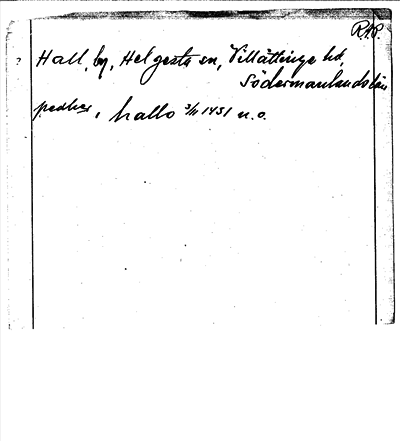 R.A.P.
Hall, by, Helgesta sn, Villåttinge hd,
Södermanlands län
pedher, hallo 3/11 1451 u.o.